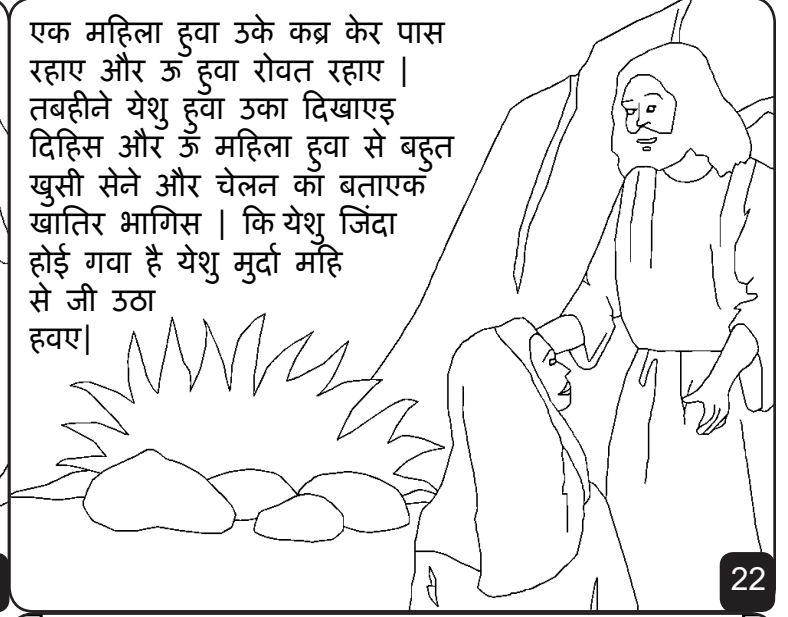 एक महिला हुवा उके कब्र केर पास
रहाए और ऊ हुवा रोवत रहाए |
तबहीने येशु हुवा उका दिखाएइ
दिहिस और ऊ महिला हुवा से बहुत
खुसी सेने और चेलन का बताएक
खातिर भागिस | कि येशु जिंदा
होई गवा है येशु मुर्दा महि
से जी उठा
हवए|
22